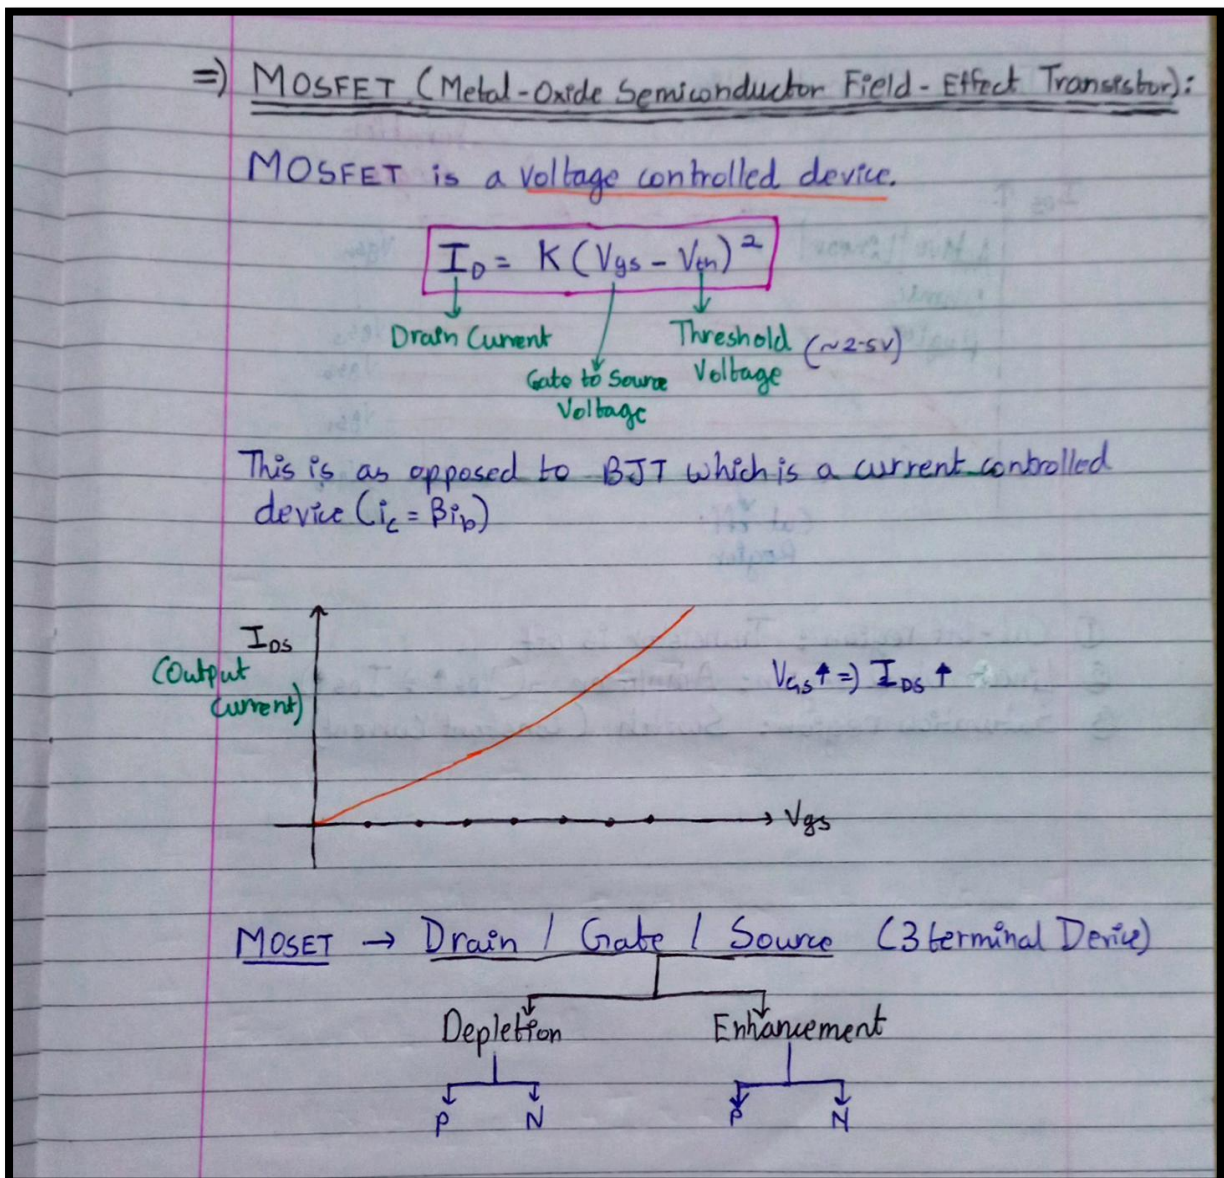 =) MOSFET (Metal-Oxide Semiconductor Field-Effect Transistor):
MOSFET is a voltage controlled device.
I_D = K(Vgs - Vth)²
Drain Current
Threshold (~2-5V)
Voltage
Gate to Source
Voltage
This is as opposed to BJT which is a current controlled
device (i_c = βi_b)
I_DS
(Output
Current)
V_GS↑ =) I_DS↑
Vgs
MOSET → Drain / Gate / Source (3 terminal Device)
Depletion Enhancement
P N P N